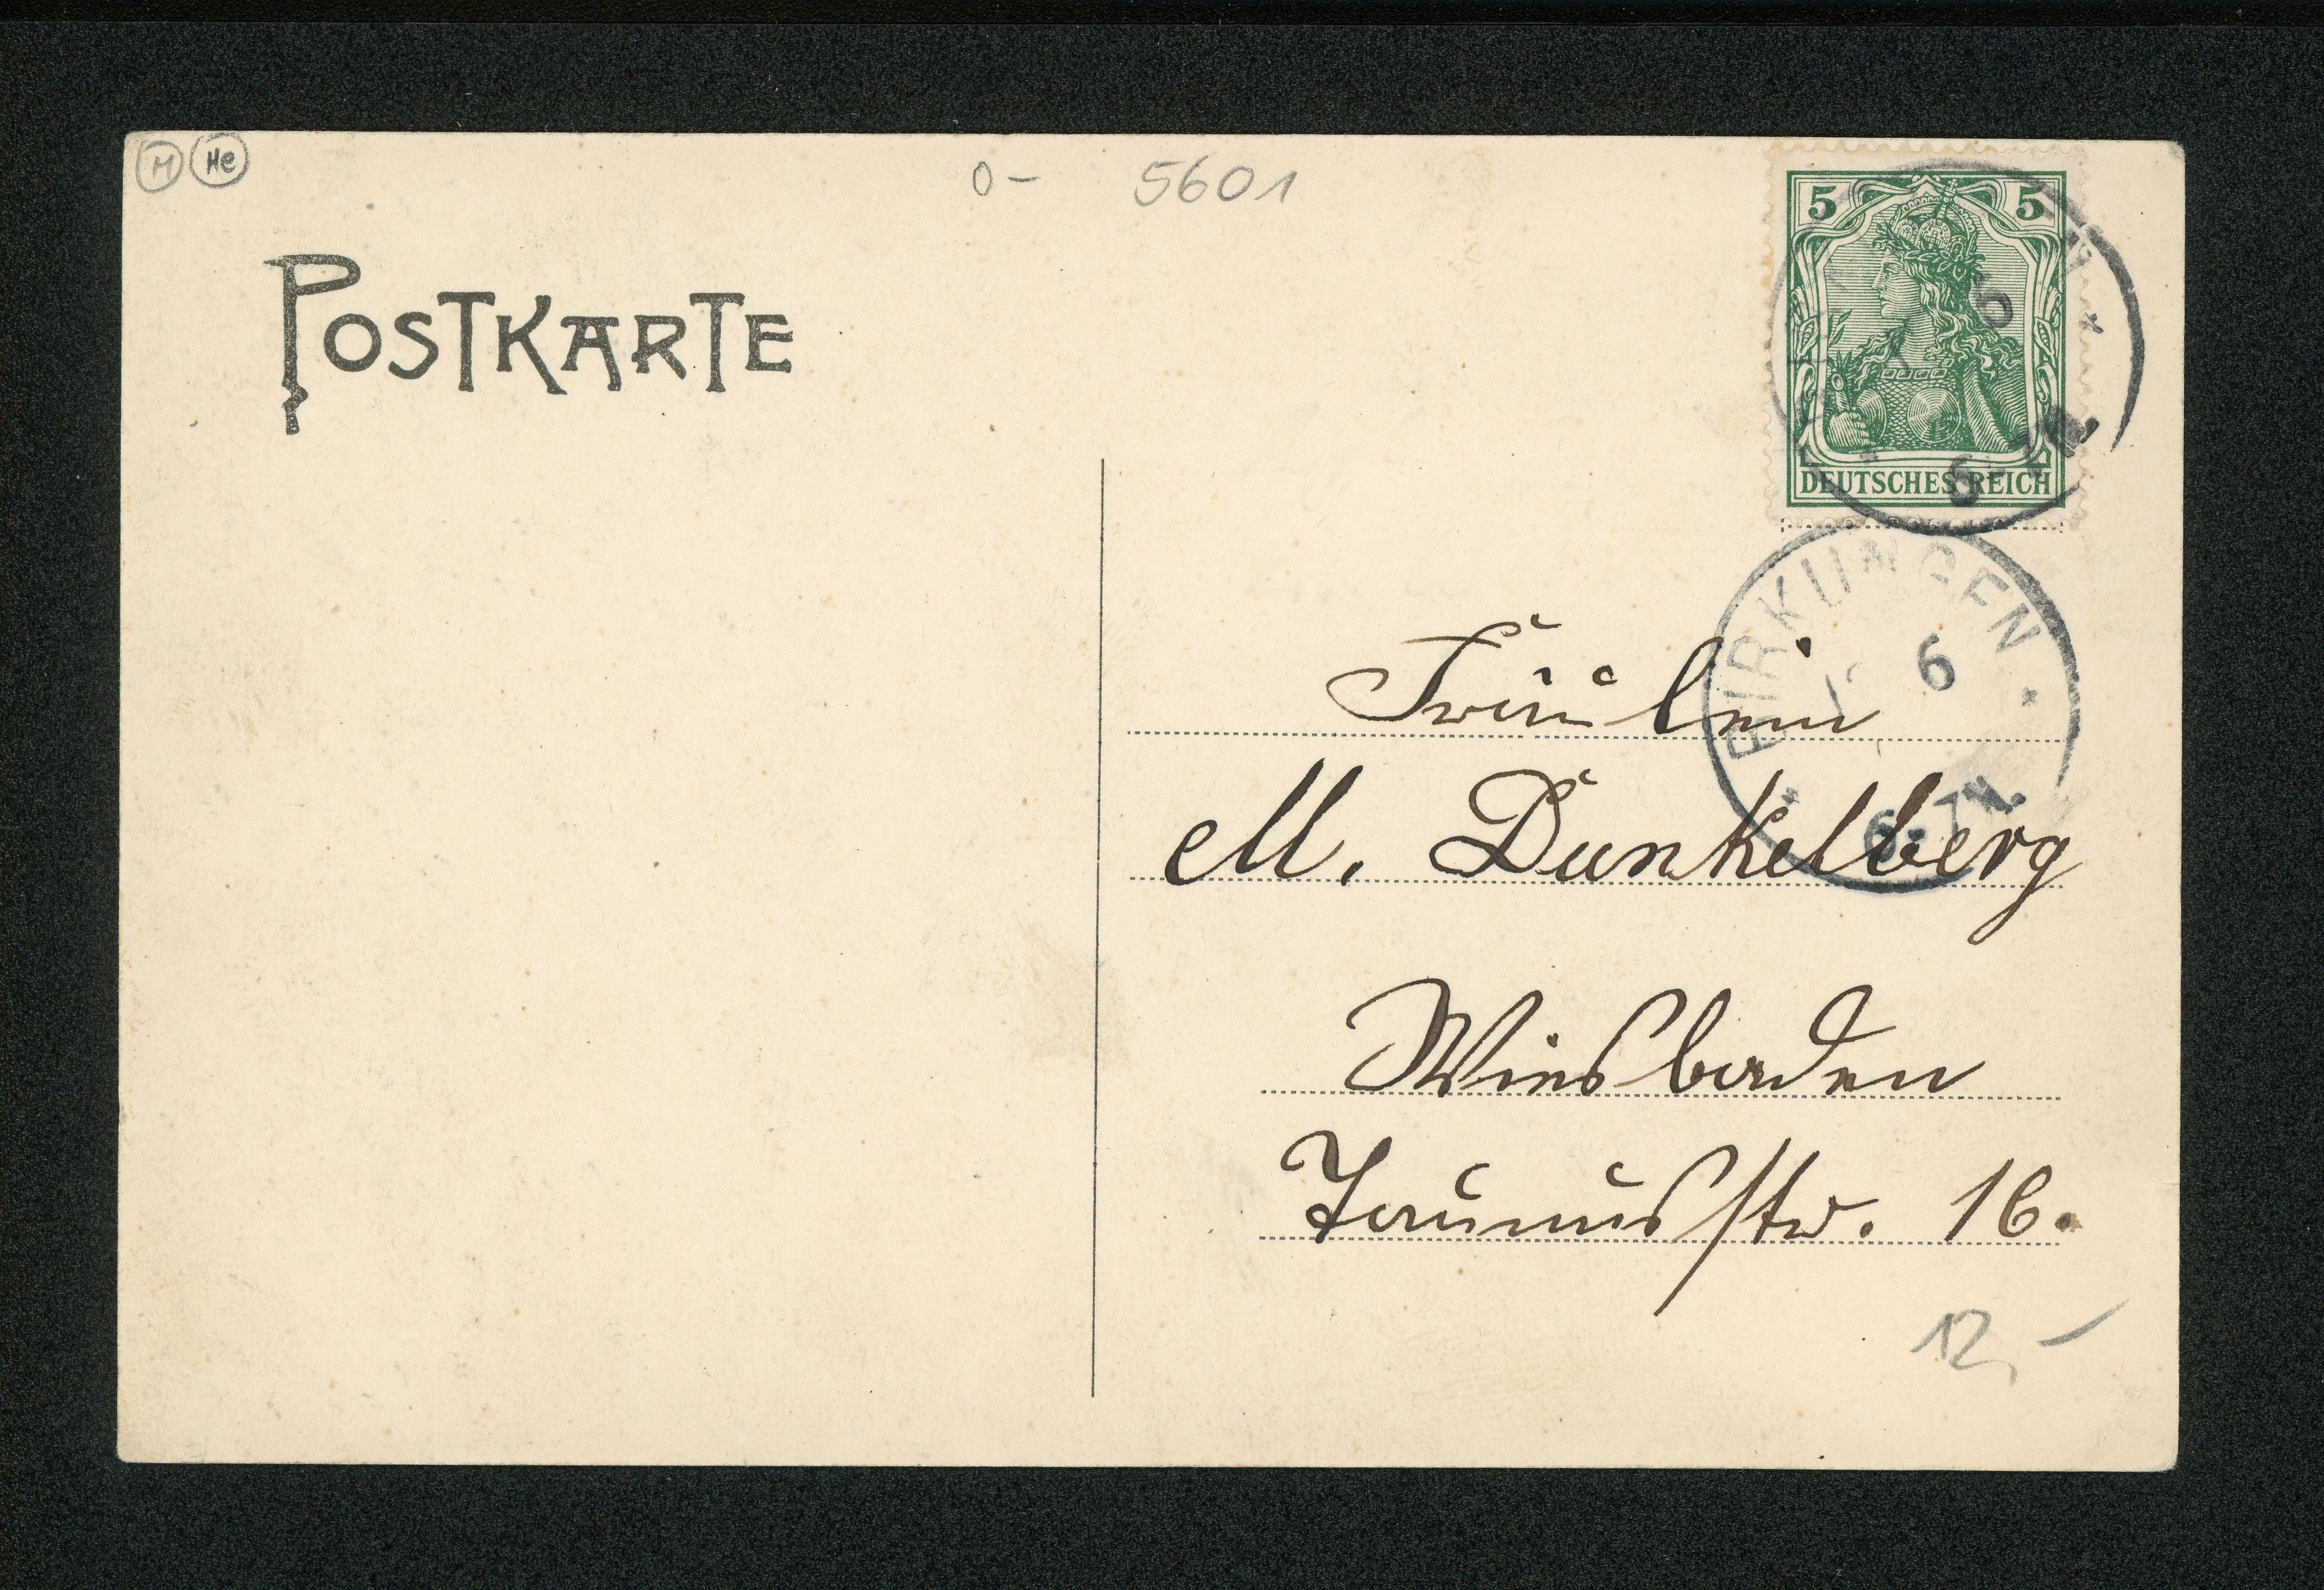 M He
0- 5601
POSTKARTE
5 5
DEUTSCHES REICH
6
6-7N.
BIRKUNGEN
6
6-7N.
Fräulein
M. Dunkelberg
Wiesbaden
Taunusstr. 16.
12,-